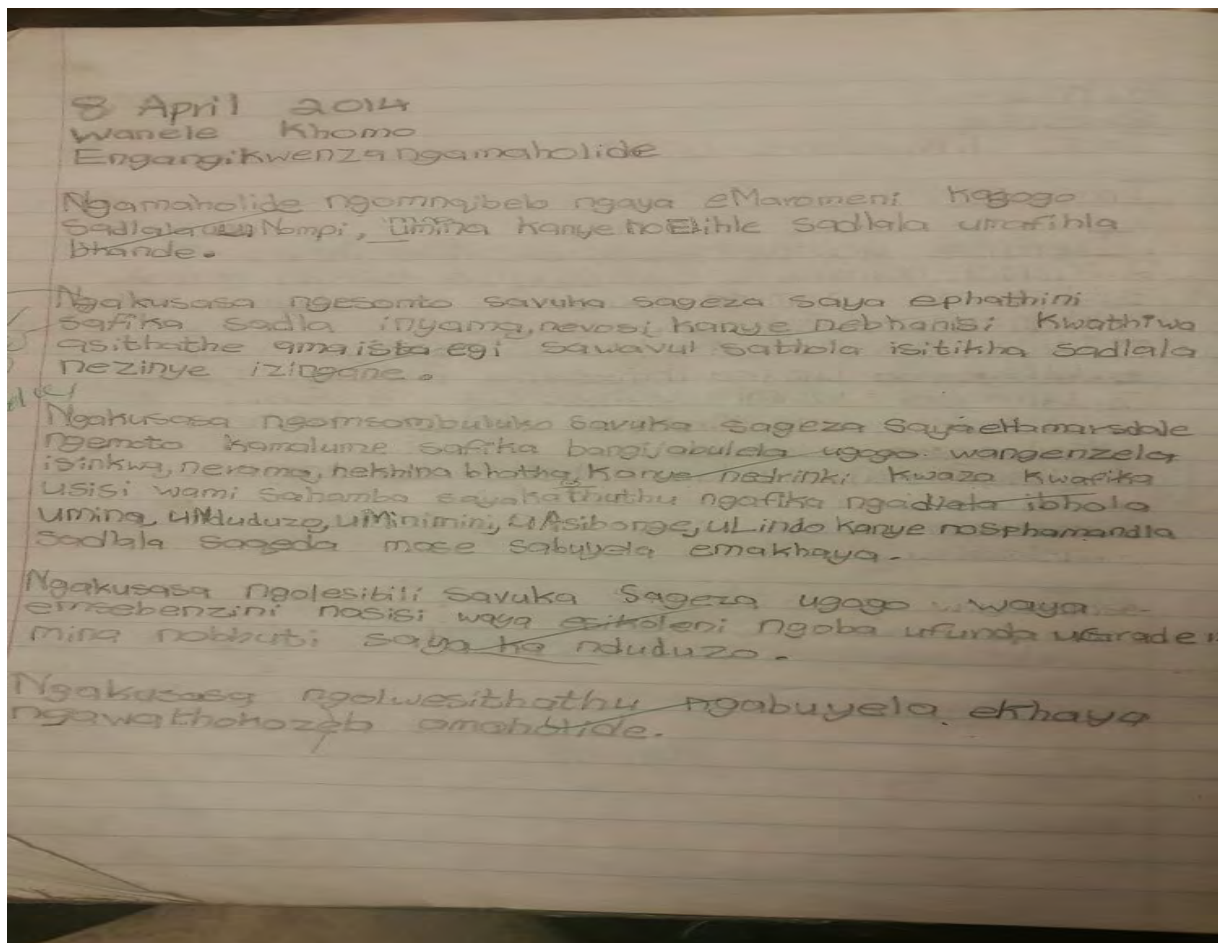 8 April 2014
Wanele Khomo
Engangikwenza ngamaholide
Ngamaholide ngomnqibelo ngaya eMaromeni kagogo
Sadlala Nompi, Umina kanye noElihle sadlala umafihla
bhande.
Ngakusasa ngesonto savuka sageza saya ephathini
safika sadla inyama, nevosi kanye nebhanisi kwathiwa
asithathe amaista egi sawavul sathola isitikha sadlala
nezinye izingane.
Ngakusasa ngomsombuluko savuka sageza saya eHamarsdale
ngemoto kamalume safika bangijabulela ugogo wangenzela
isinkwa, nerama, nekhina bhotha, kanye nedrinki kwaza kwafika
usisi wami sahamba sayakathuthu ngafika ngadlala ibhola
umina, uNduduzo, uMinimini, uAsibonge, uLindo kanye noSphamandla
sadlala saqeda mase sabuyela emakhaya.
Ngakusasa ngolesibili savuka sageza ugogo waya
emsebenzini nosisi waya esikoleni ngoba ufunda ugrade
mina nobhuti saya ka nduduzo.
Ngakusasa ngolwesithathu ngabuyela ekhaya
ngawathokozela amaholide.